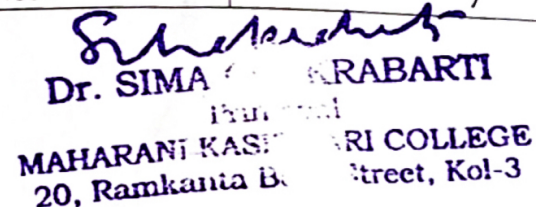 Dr. SIMA KRABARTI
MAHARANI KAS RI COLLEGE
20, Ramkanta B Street, Kol-3